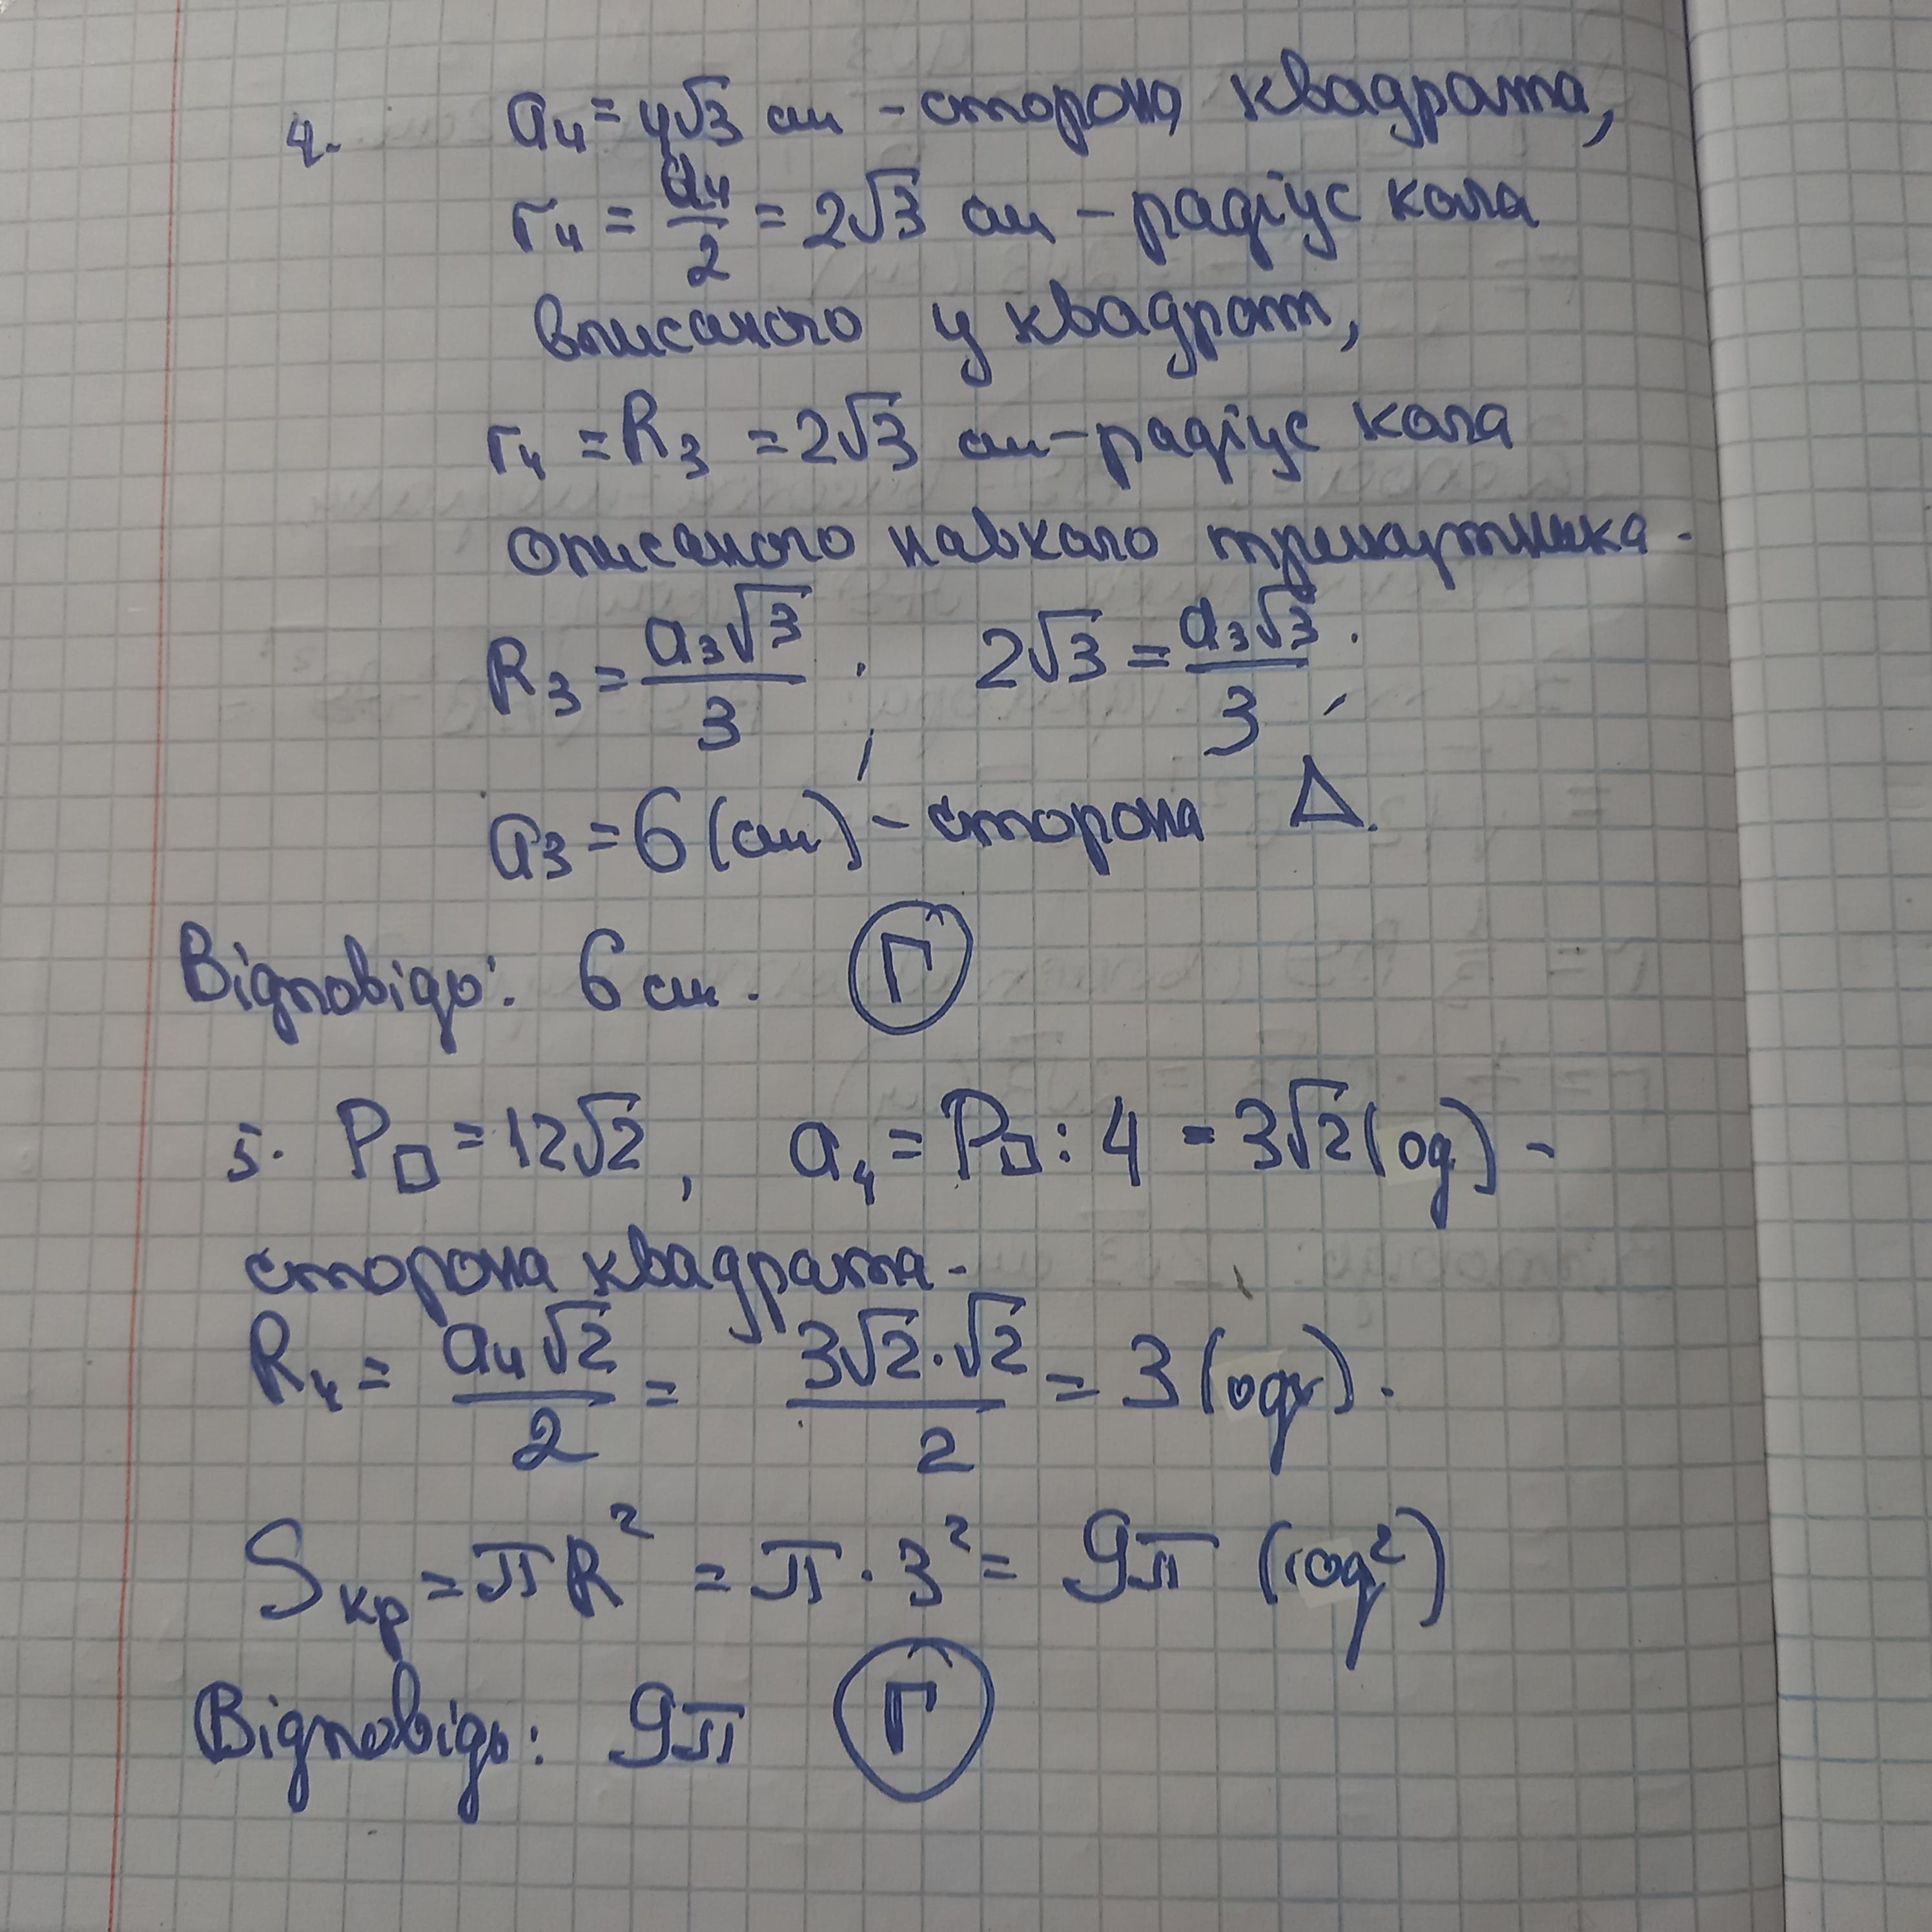 4. a₄ = 4√3 см - сторона квадрата,
r₄ = a₄/2 = 2√3 см - радіус кола
вписаного у квадрат,
r₄ = R₃ = 2√3 см - радіус кола
описаного навколо трикутника.
R₃ = a₃√3/3 ; 2√3 = a₃√3/3 ;
a₃ = 6 (см) - сторона Δ.
Відповідь: 6 см. Г
5. P□ = 12√2, a₄ = P□ : 4 = 3√2 (од) -
сторона квадрата.
R₄ = a₄√2/2 = 3√2·√2/2 = 3 (од).
Sкр = πR² = π · 3² = 9π (од²)
Відповідь: 9π Г